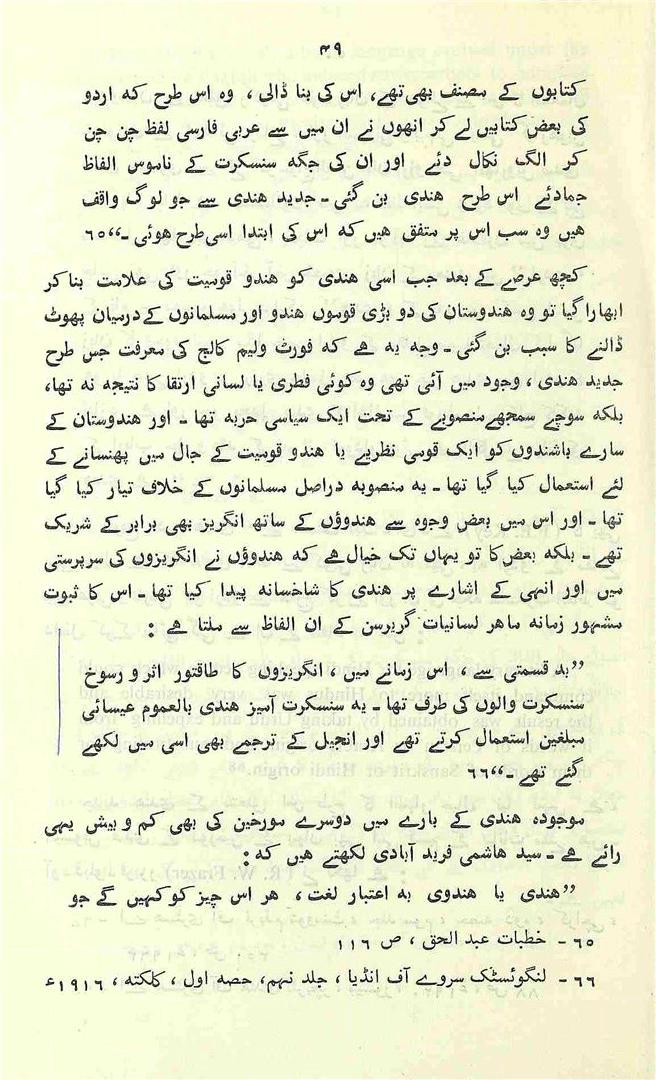 ۴۹
کتابوں کے مصنف بھی تھے، اس کی بنا ڈالی ، وہ اس طرح کہ اردو
کی بعض کتابیں لے کر انھوں نے ان میں سے عربی فارسی لفظ چن چن
کر الگ نکال دئے اور ان کی جگہ سنسکرت کے ناموس الفاظ
جمادئے اس طرح ھندی بن گئی ـ جدید ھندی سے جو لوگ واقف
ھیں وہ سب اس پر متفق ھیں کہ اس کی ابتدا اسی طرح ھوئی ـ،،۶۵
کچھ عرصے کے بعد جب اسی ھندی کو ھندو قومیت کی علامت بنا کر
ابھارا گیا تو وہ ھندوستان کی دو بڑی قوموں ھندو اور مسلمانوں کے درمیان پھوٹ
ڈالنے کا سبب بن گئی ـ وجہ یہ ھے کہ فورٹ ولیم کالج کی معرفت جس طرح
جدید ھندی ، وجود میں آئی تھی وہ کوئی فطری یا لسانی ارتقا کا نتیجہ نہ تھا،
بلکہ سوچے سمجھے منصوبے کے تحت ایک سیاسی حربہ تھا ـ اور ھندوستان کے
سارے باشندوں کو ایک قومی نظریے یا ھندو قومیت کے جال میں پھنسانے کے
لئے استعمال کیا گیا تھا ـ یہ منصوبہ دراصل مسلمانوں کے خلاف تیار کیا گیا
تھا ـ اور اس میں بعض وجوہ سے ھندوؤں کے ساتھ انگریز بھی برابر کے شریک
تھے ـ بلکہ بعض کا تو یہاں تک خیال ھے کہ ھندوؤں نے انگریزوں کی سرپرستی
میں اور انہی کے اشارے پر ھندی کا شاخسانہ پیدا کیا تھا ـ اس کا ثبوت
مشہور زمانہ ماھر لسانیات گریرسن کے ان الفاظ سے ملتا ھے :
”بد قسمتی سے ، اس زمانے میں ، انگریزوں کا طاقتور اثر و رسوخ
سنسکرت والوں کی طرف تھا ـ یہ سنسکرت آمیز ھندی بالعموم عیسائی
مبلغین استعمال کرتے تھے اور انجیل کے ترجمے بھی اسی میں لکھے
گئے تھے ـ،،۶۶
موجودہ ھندی کے بارے میں دوسرے مورخین کی بھی کم و بیش یہی
رائے ھے ـ سید ھاشمی فرید آبادی لکھتے ھیں کہ :
”ھندی یا ھندوی بہ اعتبار لغت، ھر اس چیز کو کہیں گے جو
۶۵ ـ خطبات عبد الحق ، ص ۱۱۶
۶۶ ـ لنگوئسٹک سروے آف انڈیا ، جلد نہم، حصہ اول ، کلکتہ ، ۱۹۱۶ء